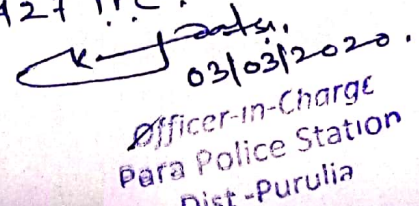 03/03/2020.
Officer-in-Charge
Para Police Station
Dist-Purulia